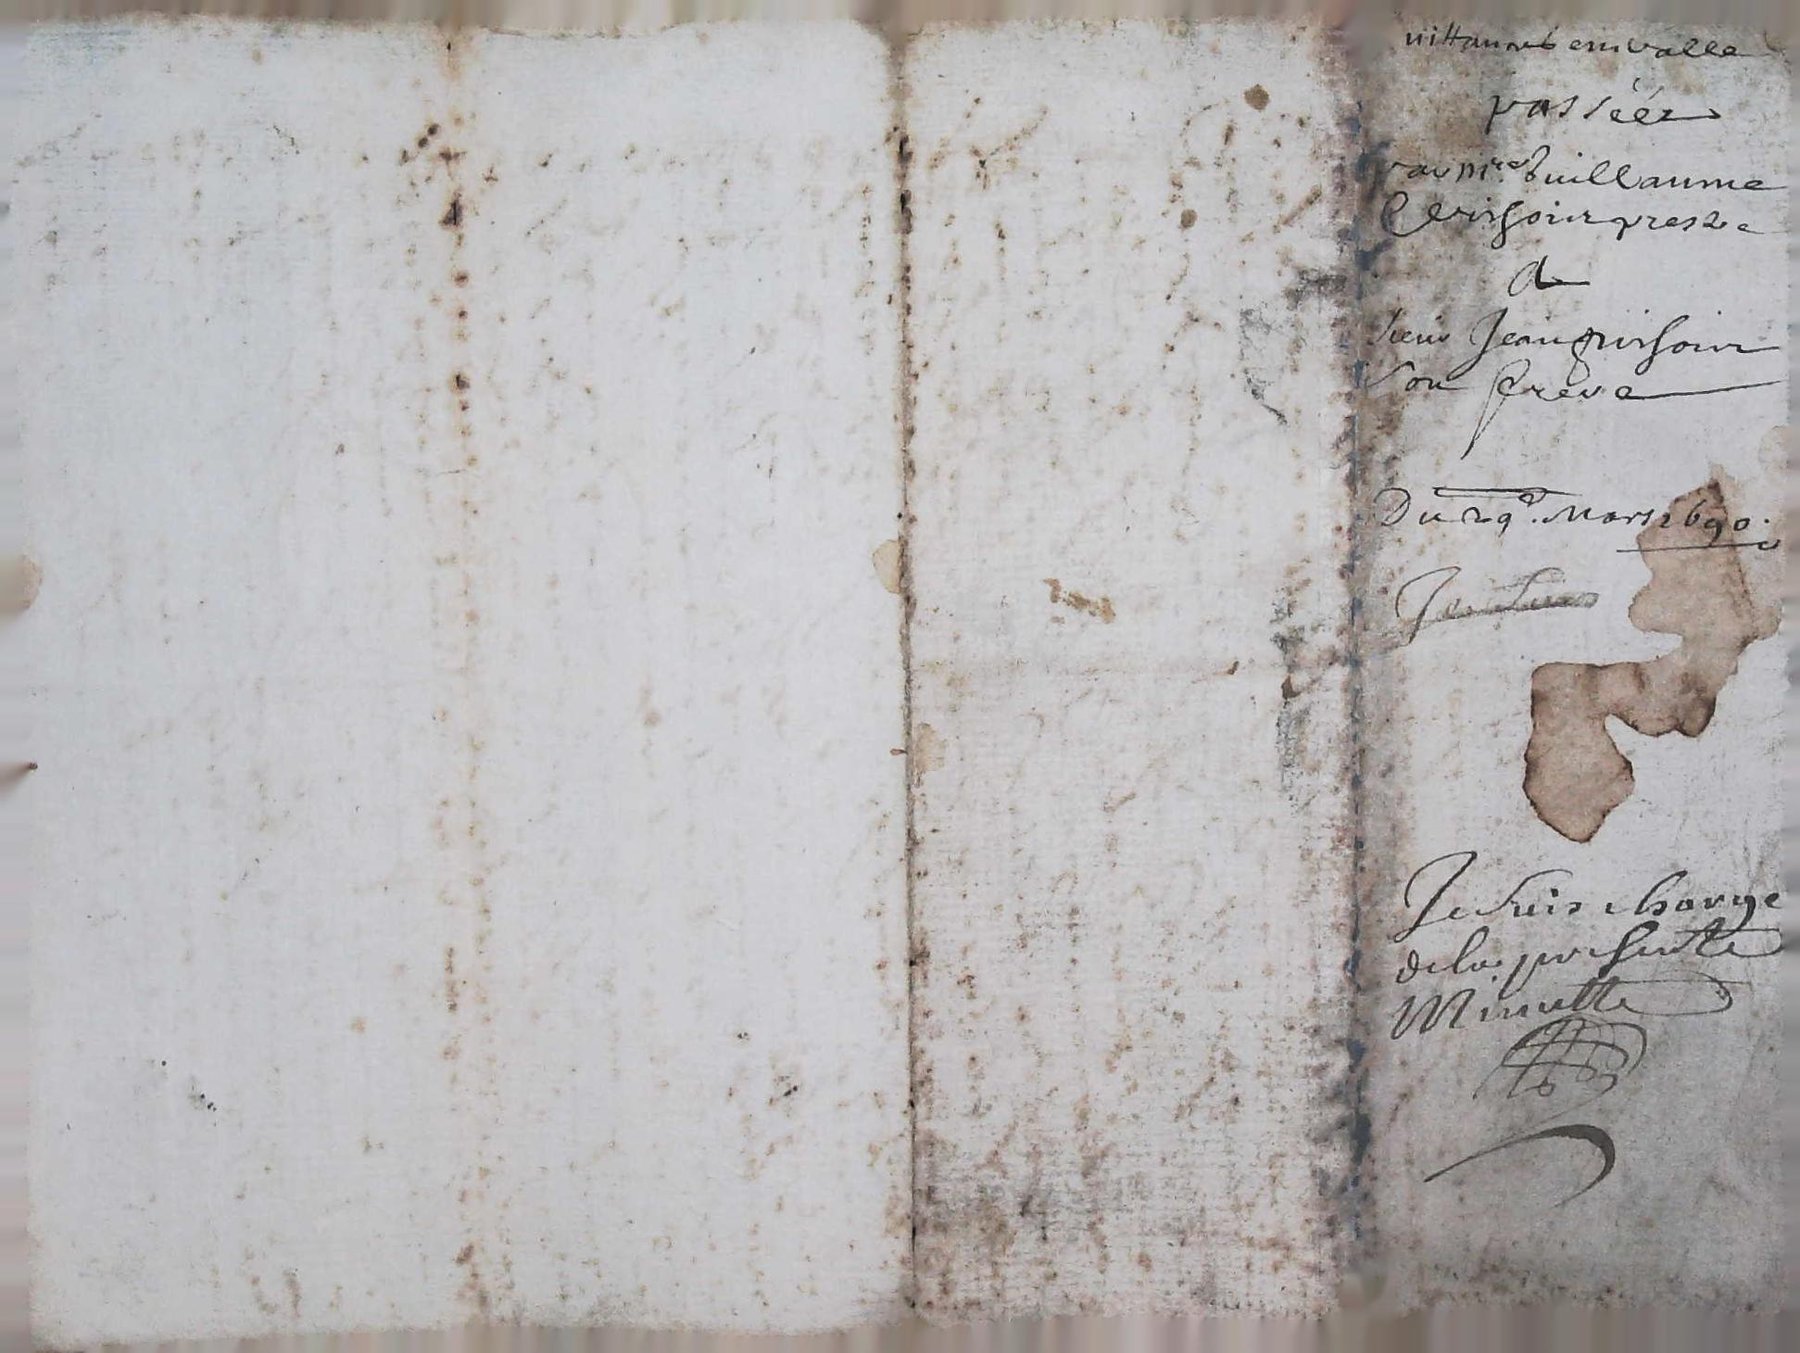 vittances en valle
passéez
par mre Guillaume
Grisoir prestre
A
sieur Jean Grisoir
son frere
Du 29e. Mars 1690.
Je suis
Je suis charge
de la presente
Minutte